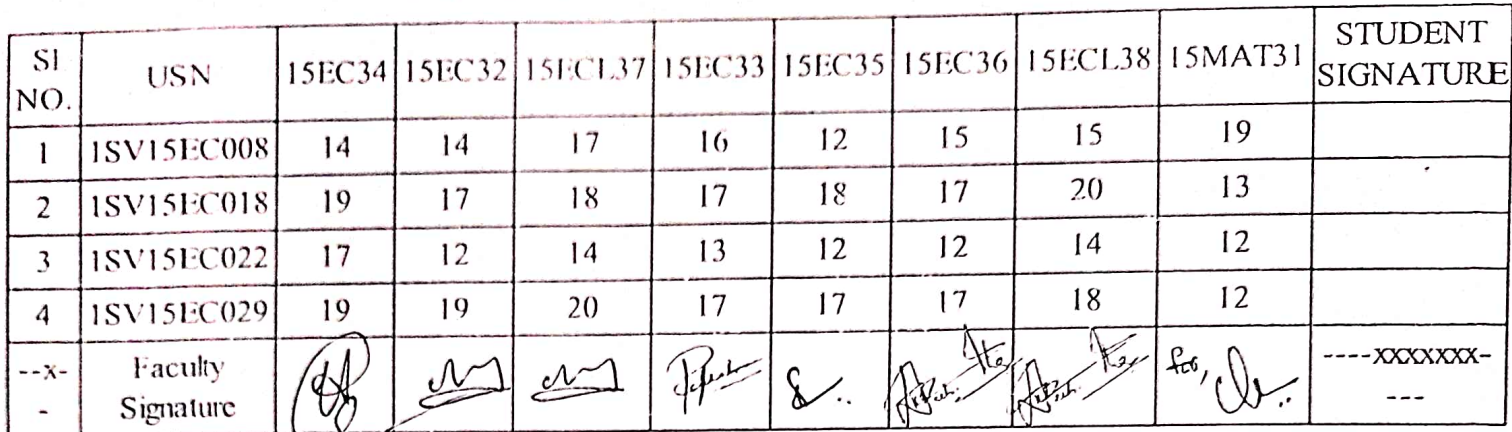 SI NO. USN 15EC34 15EC32 15ECL37 15EC33 15EC35 15EC36 15ECL38 15MAT31 STUDENT SIGNATURE
1 1SV15EC008 14 14 17 16 12 15 15 19
2 1SV15EC018 19 17 18 17 18 17 20 13
3 1SV15EC022 17 12 14 13 12 12 14 12
4 1SV15EC029 19 19 20 17 17 17 18 12
--x-- Faculty Signature for, ----XXXXXXX----